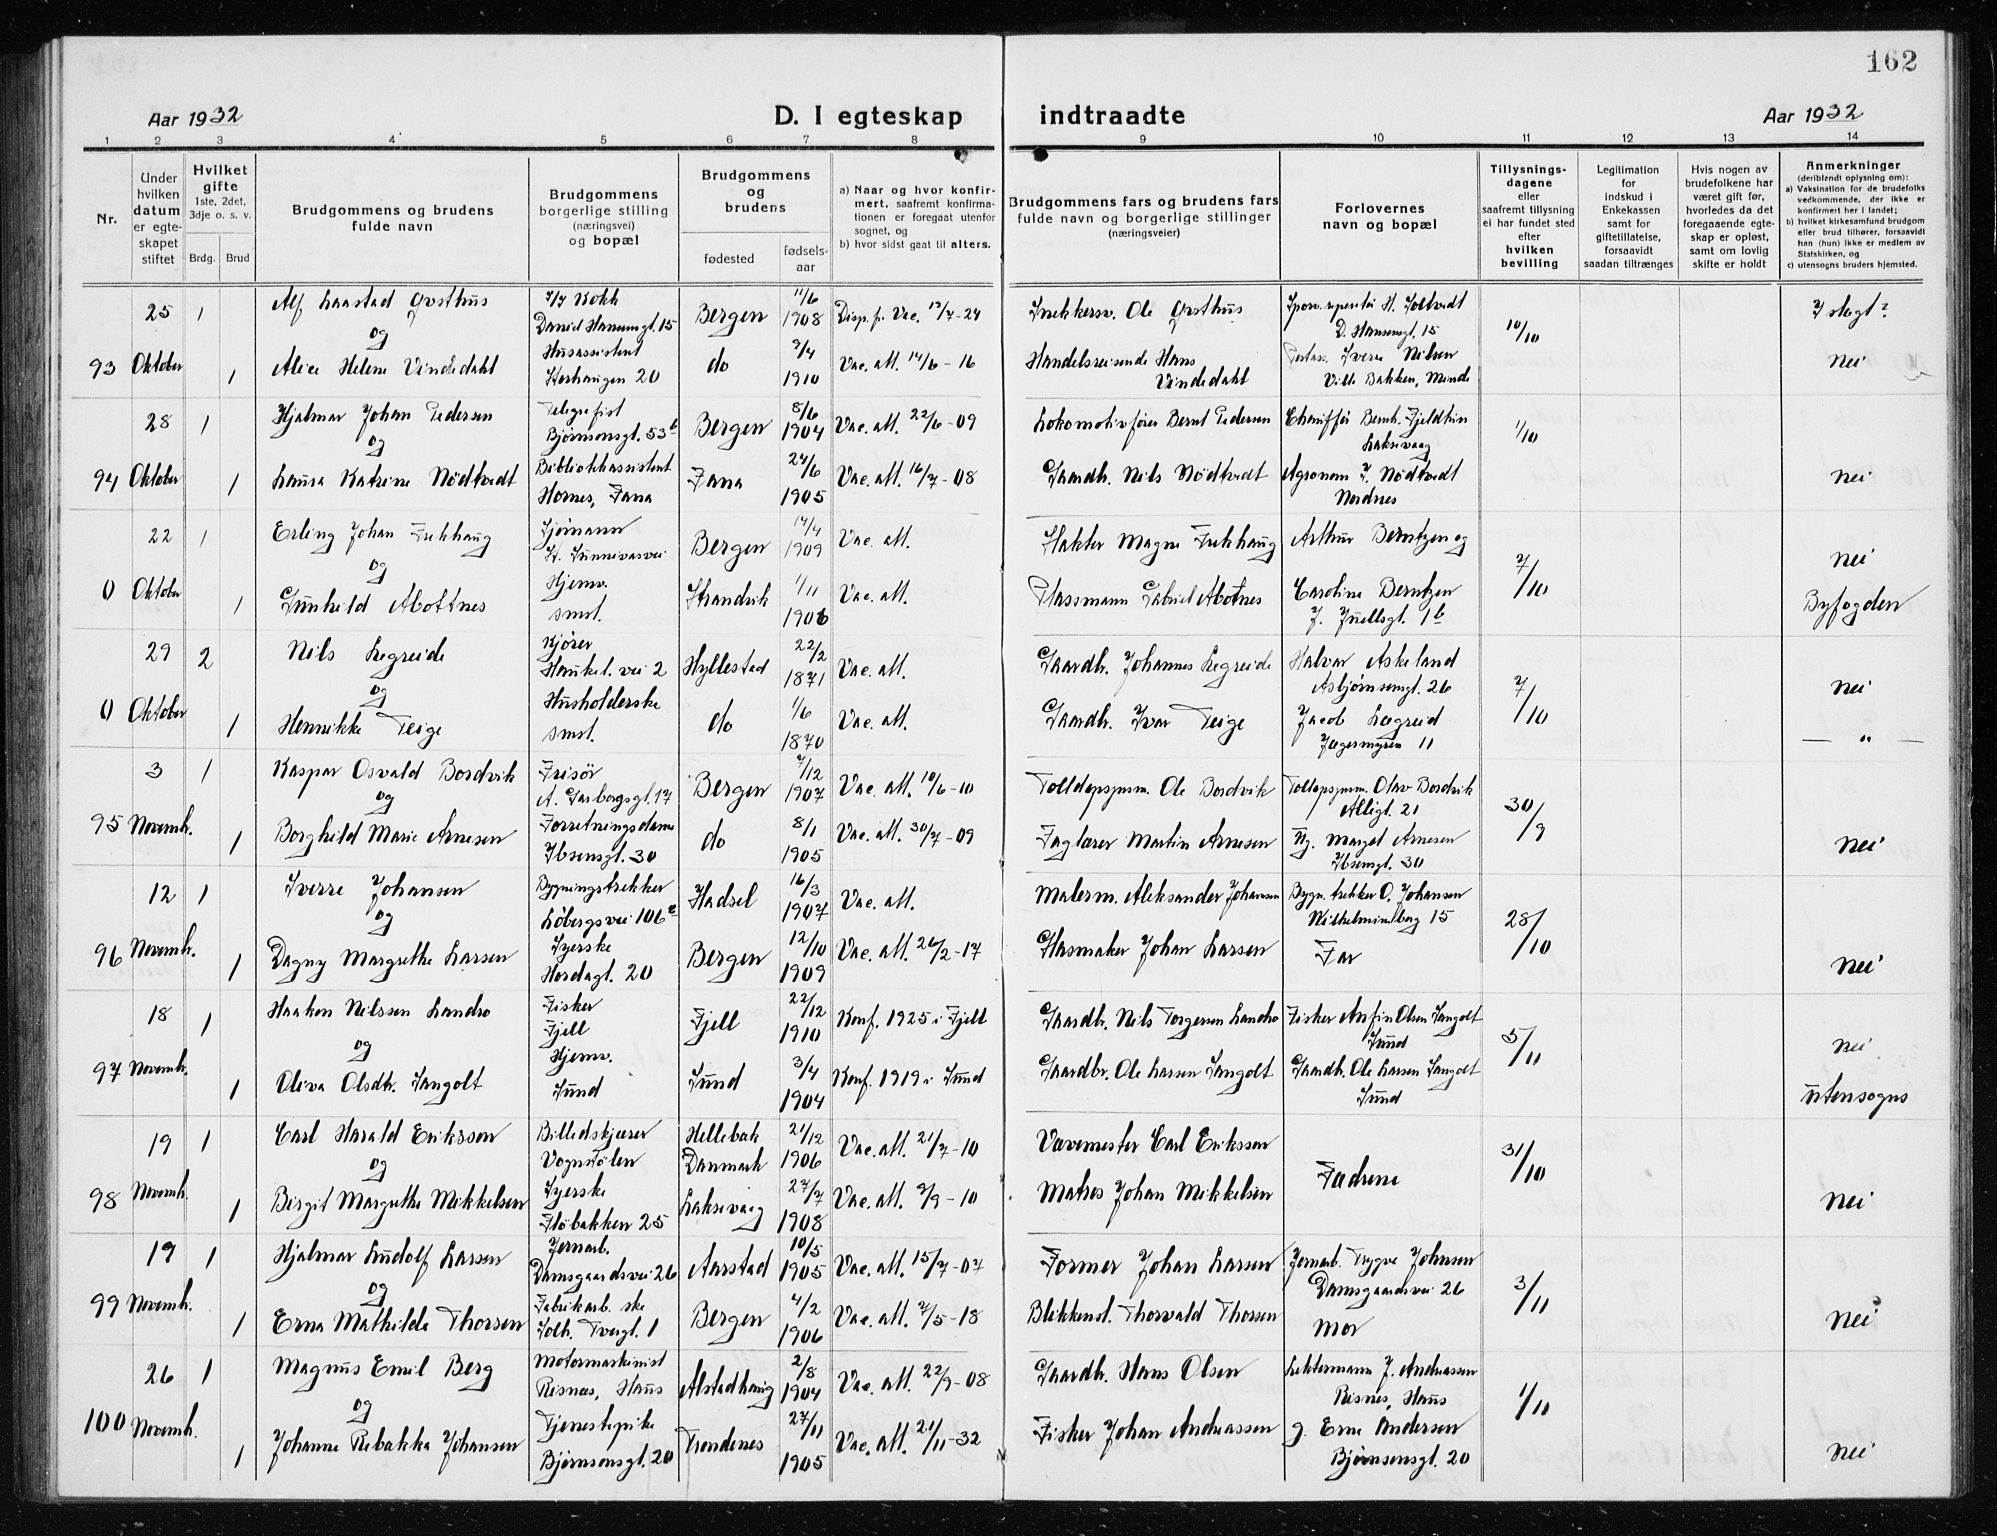 162
Aar 1932
D. I egteskap indtraadte
Aar 1932
1 2 3 4 5 6 7 8 9 10 11 12 13 14
Nr.
Under hvilken datum er egteskapet stiftet
Hvilket gifte 1ste, 2det, 3dje o. s. v.
Brdg. Brud
Brudgommens og brudens fulde navn
Brudgommens borgerlige stilling (næringsvei) og bopæl
Brudgommens og brudens
fødested
fødselsaar
a) Naar og hvor konfirmert, saafremt konfirmationen er foregaat utenfor sognet, og
b) hvor sidst gaat til alters.
Brudgommens fars og brudens fars fulde navn og borgerlige stillinger (næringsveier)
Forlovernes navn og bopæl
Tillysningsdagene eller saafremt tillysning ei har fundet sted efter hvilken bevilling
Legitimation for indskud i Enkekassen samt for giftetillatelse, forsaavidt saadan tiltrænges
Hvis nogen av brudefolkene har været gift før, hvorledes da det foregaaende egteskap er opløst, samt om lovlig skifte er holdt
Anmerkninger (deriblandt oplysning om):
a) Vaksination for de brudefolks vedkommende, der ikke er konfirmert her i landet;
b) hvilket kirkesamfund brudgom eller brud tilhører, forsaavidt han (hun) ikke er medlem av Statskirken, og
c) utensogns bruders hjemsted.
25 1 Alf Laastad Gosthus
Kokk
Daniel Hansensgt. 15 Bergen 11/6 1908 Disp. fr. Vac. 12/7-24 Snekkersv. Ole Gosthus
H. Soltvedt
D. Hansensgt. 15 10/10 I slegt?
og
93 Oktober 1 Alice Helene Vindedahl Husassistent
20 do 9/4 1910 Vac. att. 14/6-16 Handelsreisende Hans Vindedahl
Sverre Nilsen
Villa Bakken, Minde nei
28 1 Hjalmar Johan Pedersen Telegrafist
Bjørnsonsgt. 53b Bergen 8/6 1904 Vac. att. 22/6-09 Lokomotivfører Bernt Pedersen Chauffør Bernh.
Laksevaag 1/10
og
94 Oktober 1 Laura Katrine Nödtvedt Bibliotekassistent
Hornes, Fana Fana 24/6 1905 Vac. att. 16/7-08 Gaardbr. Nils Nödtvedt Agronom J. Nödtvedt
Nordnes nei
22 1 Erling Johan Frekhaug Sjømann
St. Sunnivasvei Bergen 14/4 1909 Vac. att. Slakter Magne Frekhaug Arthur Berntzen og 7/10 nei
og
0 Oktober 1 Gunhild Abottnes Hjemv.
smst. Strandvik 1/11 1906 Vac. att. Plassmann Gabriel Abotnes Caroline Berntzen
J. Juellsgt. 1b Byfogden
29 2 Nils Legreide Kjører
Haukel. vei 2 Hyllestad 22/2 1871 Vac. att. Gaardbr. Johannes Legreide Halvar Askeland
Asbjørnsensgt. 26 7/10 nei
og
0 Oktober 1 Henrikke Teige Husholderske
smst. do 1/6 1870 Vac. att. Gaardbr. Ivar Teige Jacob Lægreid
Jægermyren 11 — " —
3 1 Kaspar Osvald Bordvik Frisør
A. Garborgsgt. 17 Bergen 7/12 1907 Vac. att. 10/6-10 Tolldopsynsm. Ole Bordvik Tollopsynsm. Olav Bordvik
21 30/9
og
95 Novemb. 1 Borghild Marie Arnesen Forretningsdame
Ibsensgt. 30 do 8/1 1905 Vac. att. 30/7-09 Faglærer Martin Arnesen Margot Arnesen
Ibsensgt. 30 nei
12 1 Sverre Johansen Bygningstrekker
Løbergsvei 106 Hadsel 16/3 1907 Vac. att. Malerm. Aleksander Johansen Bygn. trekker O. Johansen
Wilhelminborg 15 28/10
og
96 Novemb. 1 Dagny Margrethe Larsen Syerske
Hordagt. 20 Bergen 12/10 1909 Vac. att. 26/2-17 Glasmaker Johan Larsen Far nei
18 1 Haakon Nilssen Landro Fisker
Fjell Fjell 22/12 1910 Konf. 1925 i Fjell Gaardbr. Nils Torgersen Landro Fisker Anfin Olsen Tangolt
Sund 5/11 nei
og
97 Novemb. 1 Oliva Olsdtr. Sangolt Hjemv.
Sund Sund 3/4 1904 Konf. 1919 i Sund Gaardbr. Ole Larsen Sangolt Gaardbr. Ole Larsen Sangolt
Sund utensogns
19 1 Carl Harald Eriksson Billedskjærer
Vognstølen Hellebæk
Danmark 21/12 1906 Vac. att. 21/7-10 Vævemester Carl Eriksson Fædrene 31/10
og
98 Novemb. 1 Birgit Margrethe Mikkelsen Syerske
Fløbakken 25 Laksevaag 27/7 1908 Vac. att. 9/9-10 Matros Johan Mikkelsen nei
19 1 Hjalmar Ludolf Larsen Jernarb.
Damsgaardsvei 26 Aarstad 10/5 1905 Vac. att. 15/7-07 Former Johan Larsen Jernarb. Trygve Johnsen
Damsgaardsvei 26 3/11
og
99 Novemb. 1 Erna Mathilde Thorsen Fabrikarb.ske
Solh. Tvergt. 1 Bergen 4/2 1906 Vac. att. 7/5-18 Blikkensl. Thorvald Thorsen Mor nei
26 1 Magnus Emil Berg Motormaskinist
Risnes, Haus Alstadhaug 2/8 1904 Vac. att. 22/9-08 Gaardbr. Hans Olsen Lektermann J. Andreassen
Risnes, Haus 1/11
og
100 Novemb. 1 Johanne Rebakka Johansen Tjenestepike
Bjørnsonsgt. 20 Trondenes 27/11 1905 Vac. att. 21/11-32 Fisker Johan Andreassen g. Erne Andersen
Bjørnsonsgt. 20 nei